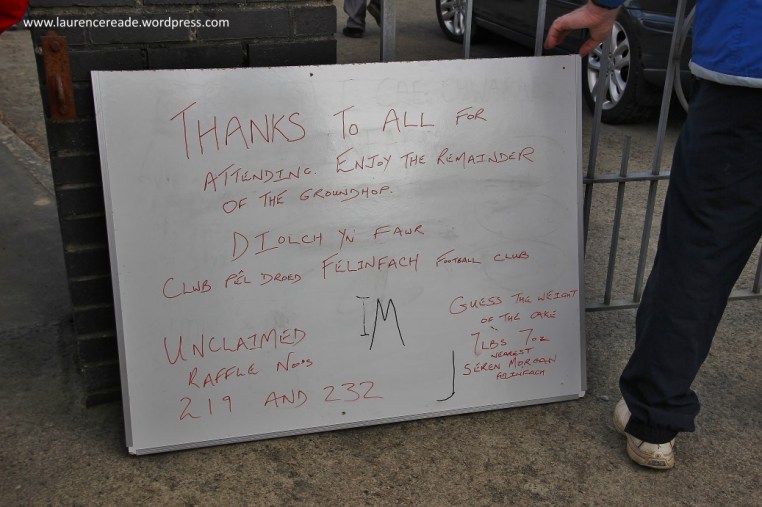 www.laurencereade.wordpress.com
THANKS TO ALL FOR
ATTENDING. ENJOY THE REMAINDER
OF THE GROUNDHOP.
DIOLCH YN FAWR
CLWB PÊL DROED FELINFACH FOOTBALL CLUB
IM
UNCLAIMED
RAFFLE NO'S
219 AND 232
GUESS THE WEIGHT
OF THE CAKE
7LBS 7OZ
NEAREST
SEREN MORGAN
FELINFACH
J